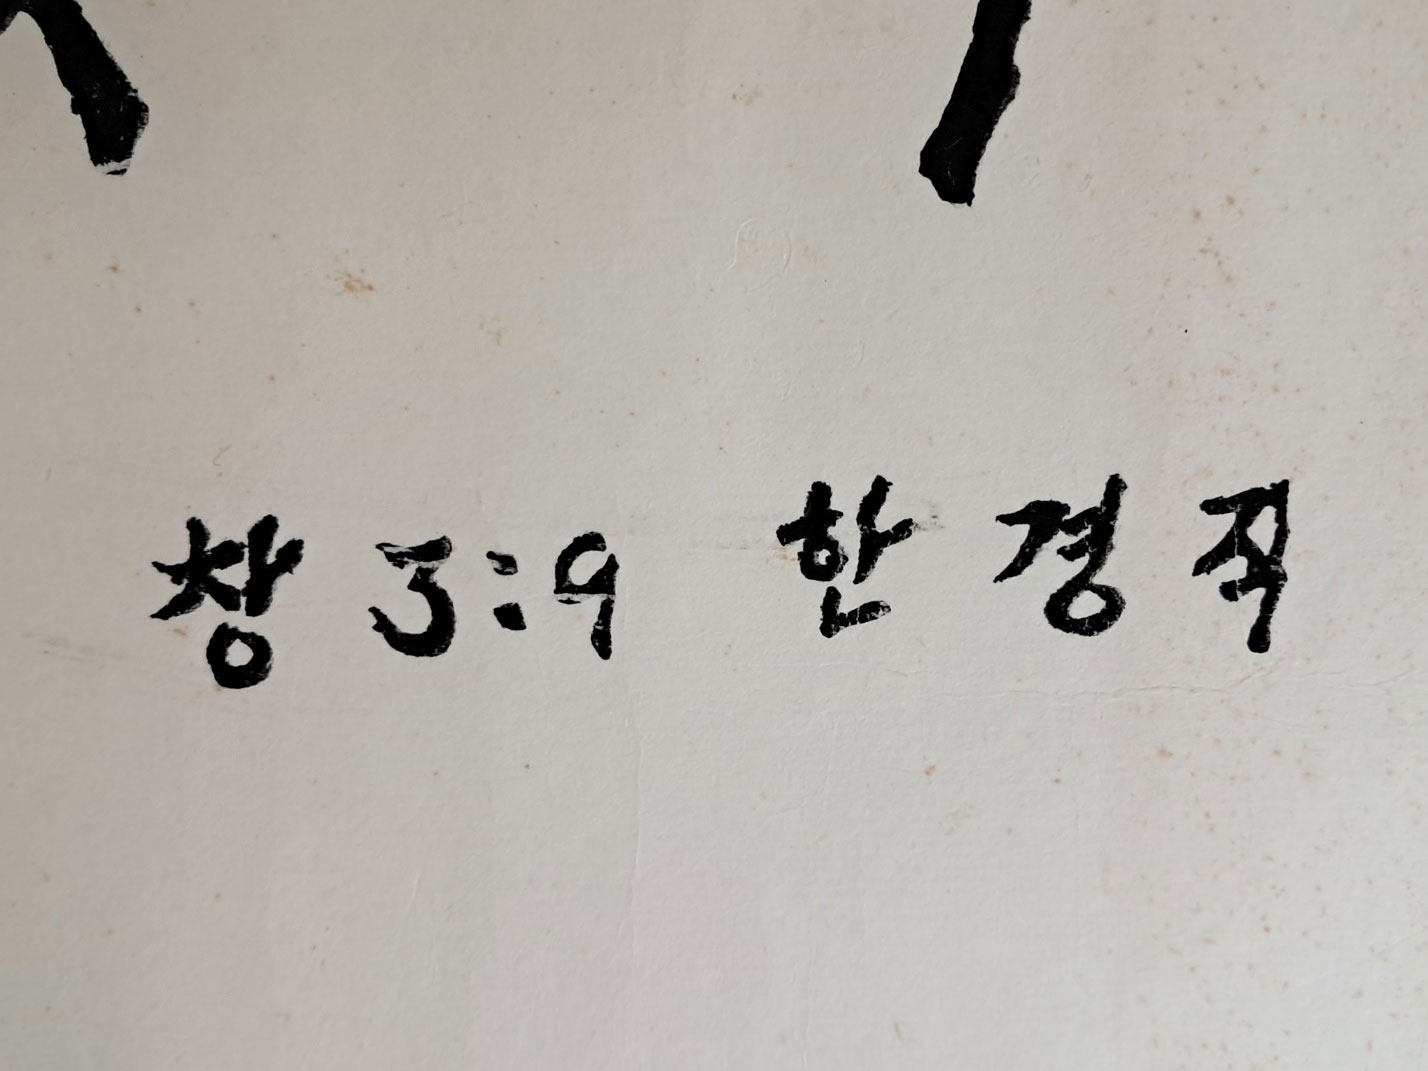 창 3:9 한 경 직